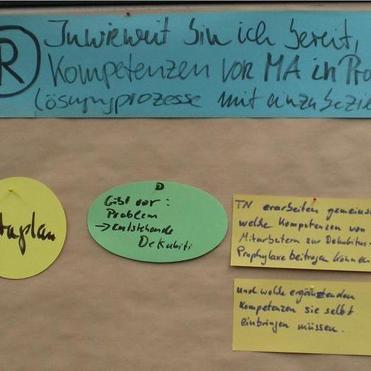 R
Inwieweit bin ich bereit,
Kompetenzen von MA in Pro
Lösungsprozesse mit einzubezie
taplan
D
Gibt vor:
Problem
→ entstehende
Dekubiti
TN erarbeiten gemeins
welche Kompetenzen von
Mitarbeitern zur Dekubitus-
Prophylaxe beitragen können
und welche ergänzenden
Kompetenzen sie selbst
einbringen müssen.